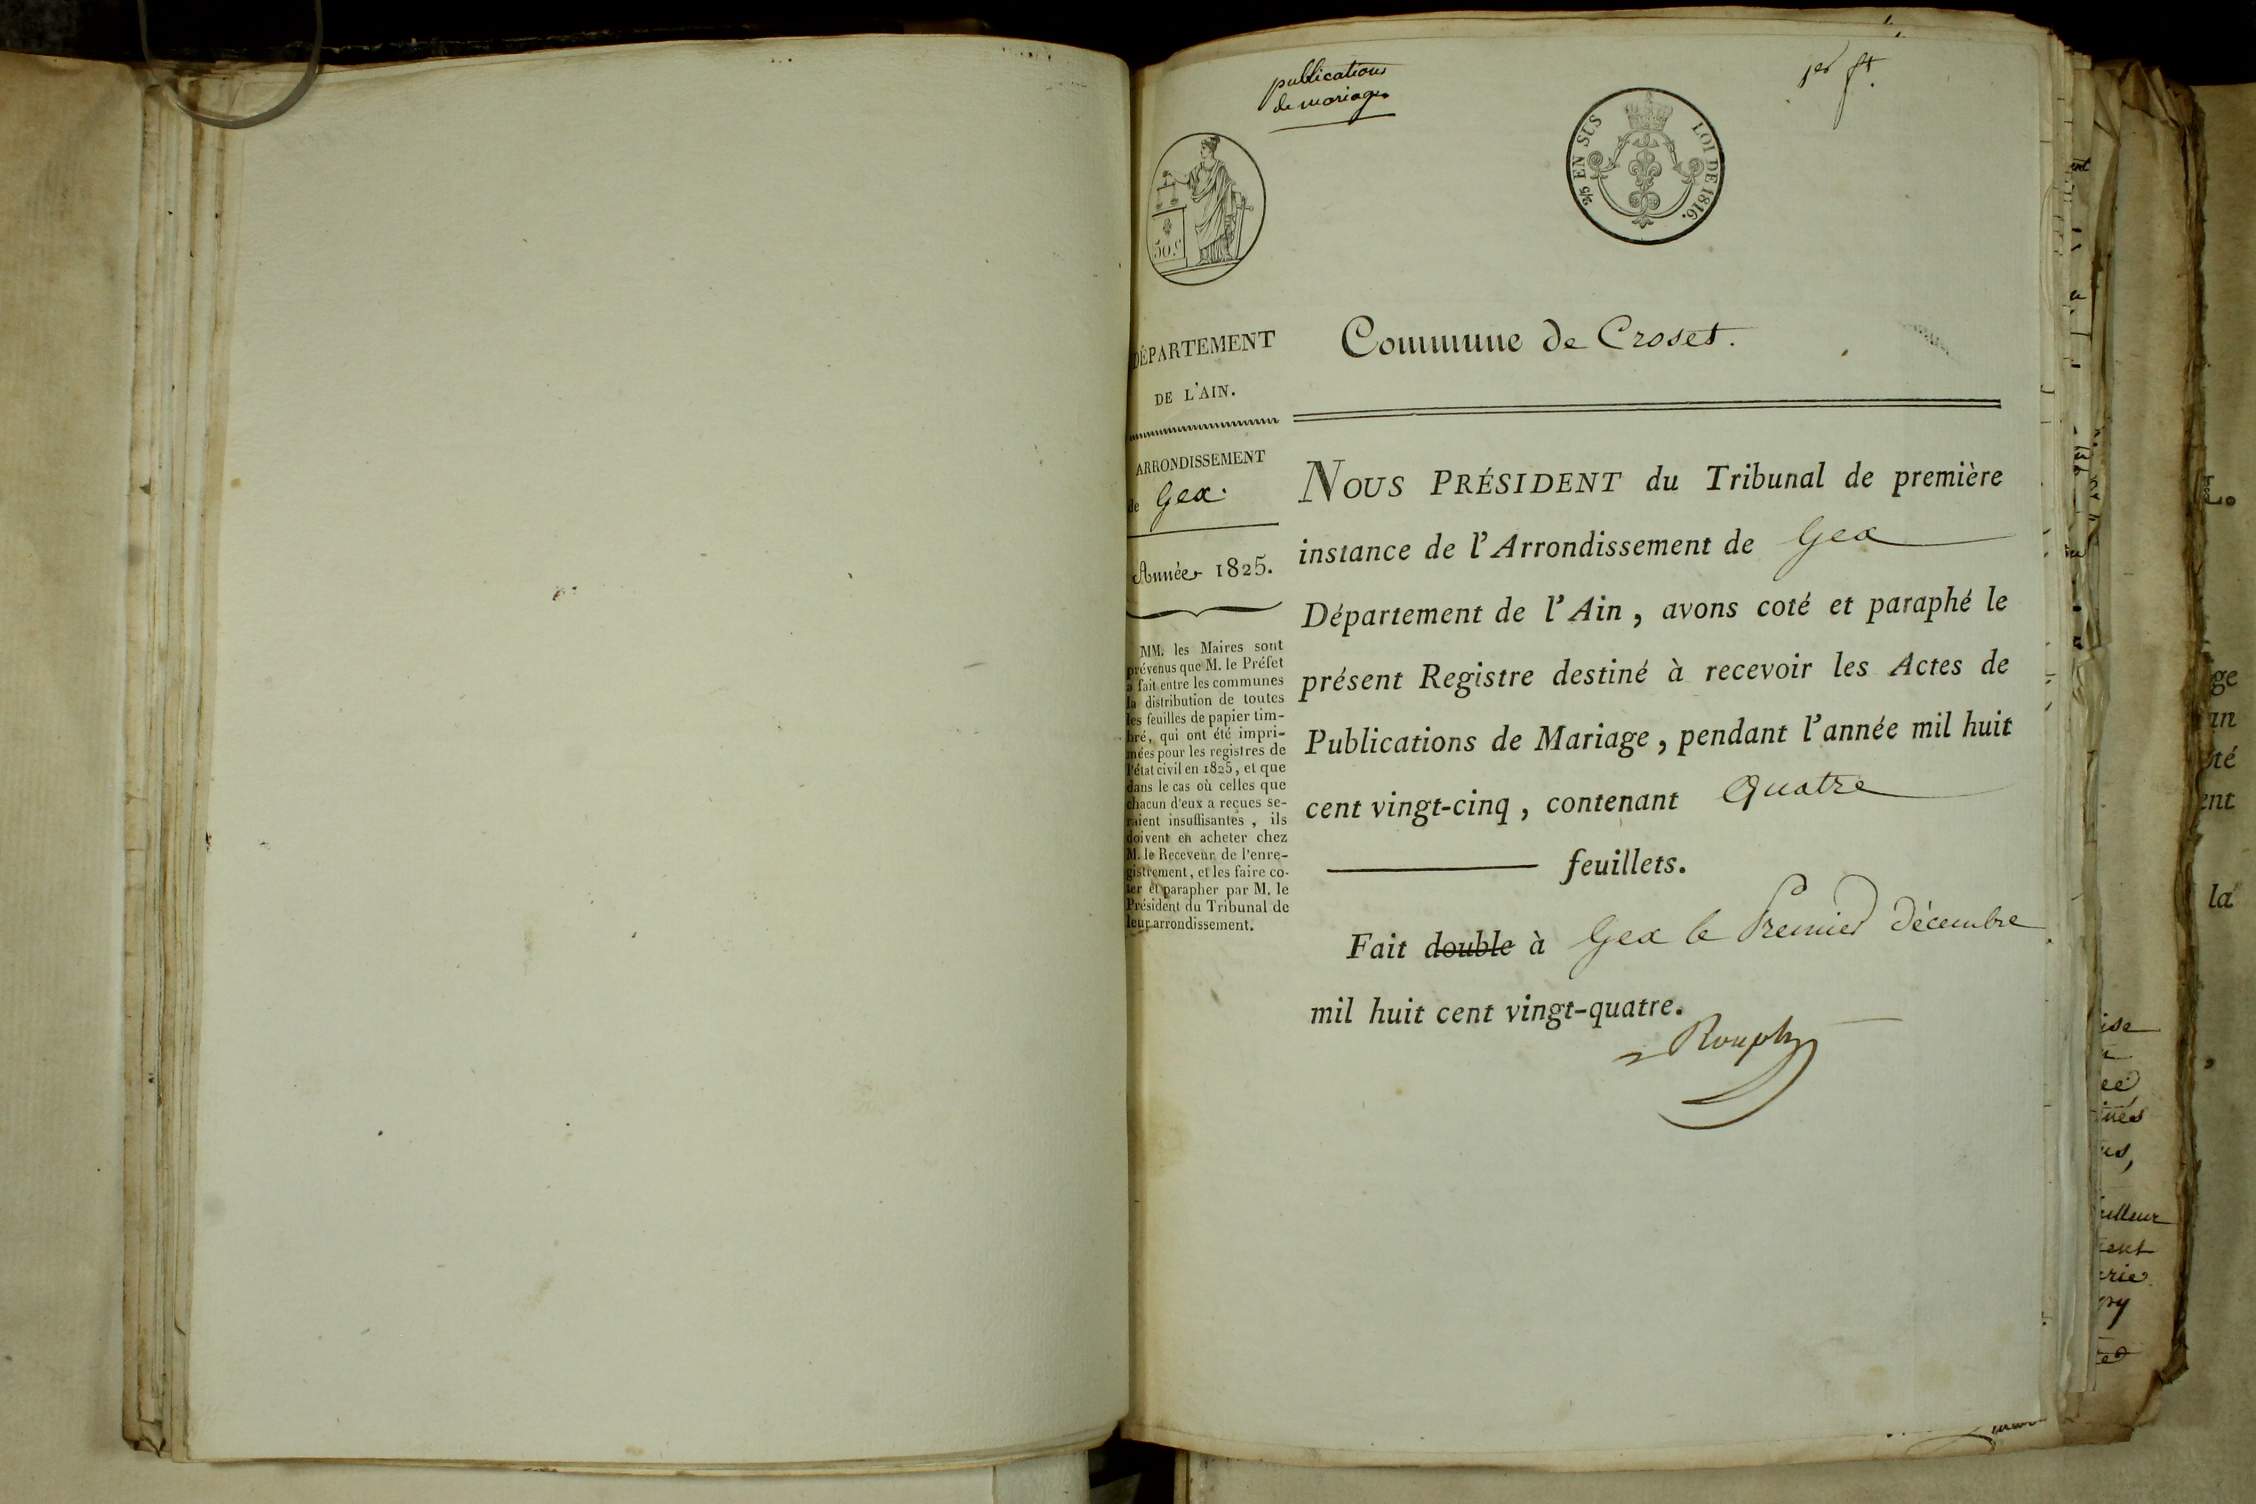 publications
de mariage
1er ft.
2/5 EN SUS LOI DE 1816.
50.c
DÉPARTEMENT
DE L'AIN.
ARRONDISSEMENT
de Gex.
Année 1825.
MM. les Maires sont
prévenus que M. le Préfet
a fait entre les communes
la distribution de toutes
les feuilles de papier tim-
bré, qui ont été impri-
mées pour les registres de
l'état civil en 1825, et que
dans le cas où celles que
chacun d'eux a reçues se-
raient insuffisantes, ils
doivent en acheter chez
M. le Receveur de l'enre-
gistrement, et les faire co-
ter et parapher par M. le
Président du Tribunal de
leur arrondissement.
Commune de Croset.
NOUS PRÉSIDENT du Tribunal de première
instance de l'Arrondissement de Gex
Département de l'Ain, avons coté et paraphé le
présent Registre destiné à recevoir les Actes de
Publications de Mariage, pendant l'année mil huit
cent vingt-cinq, contenant Quatre
feuillets.
Fait double à Gex le Premier décembre
mil huit cent vingt-quatre.
Rouph